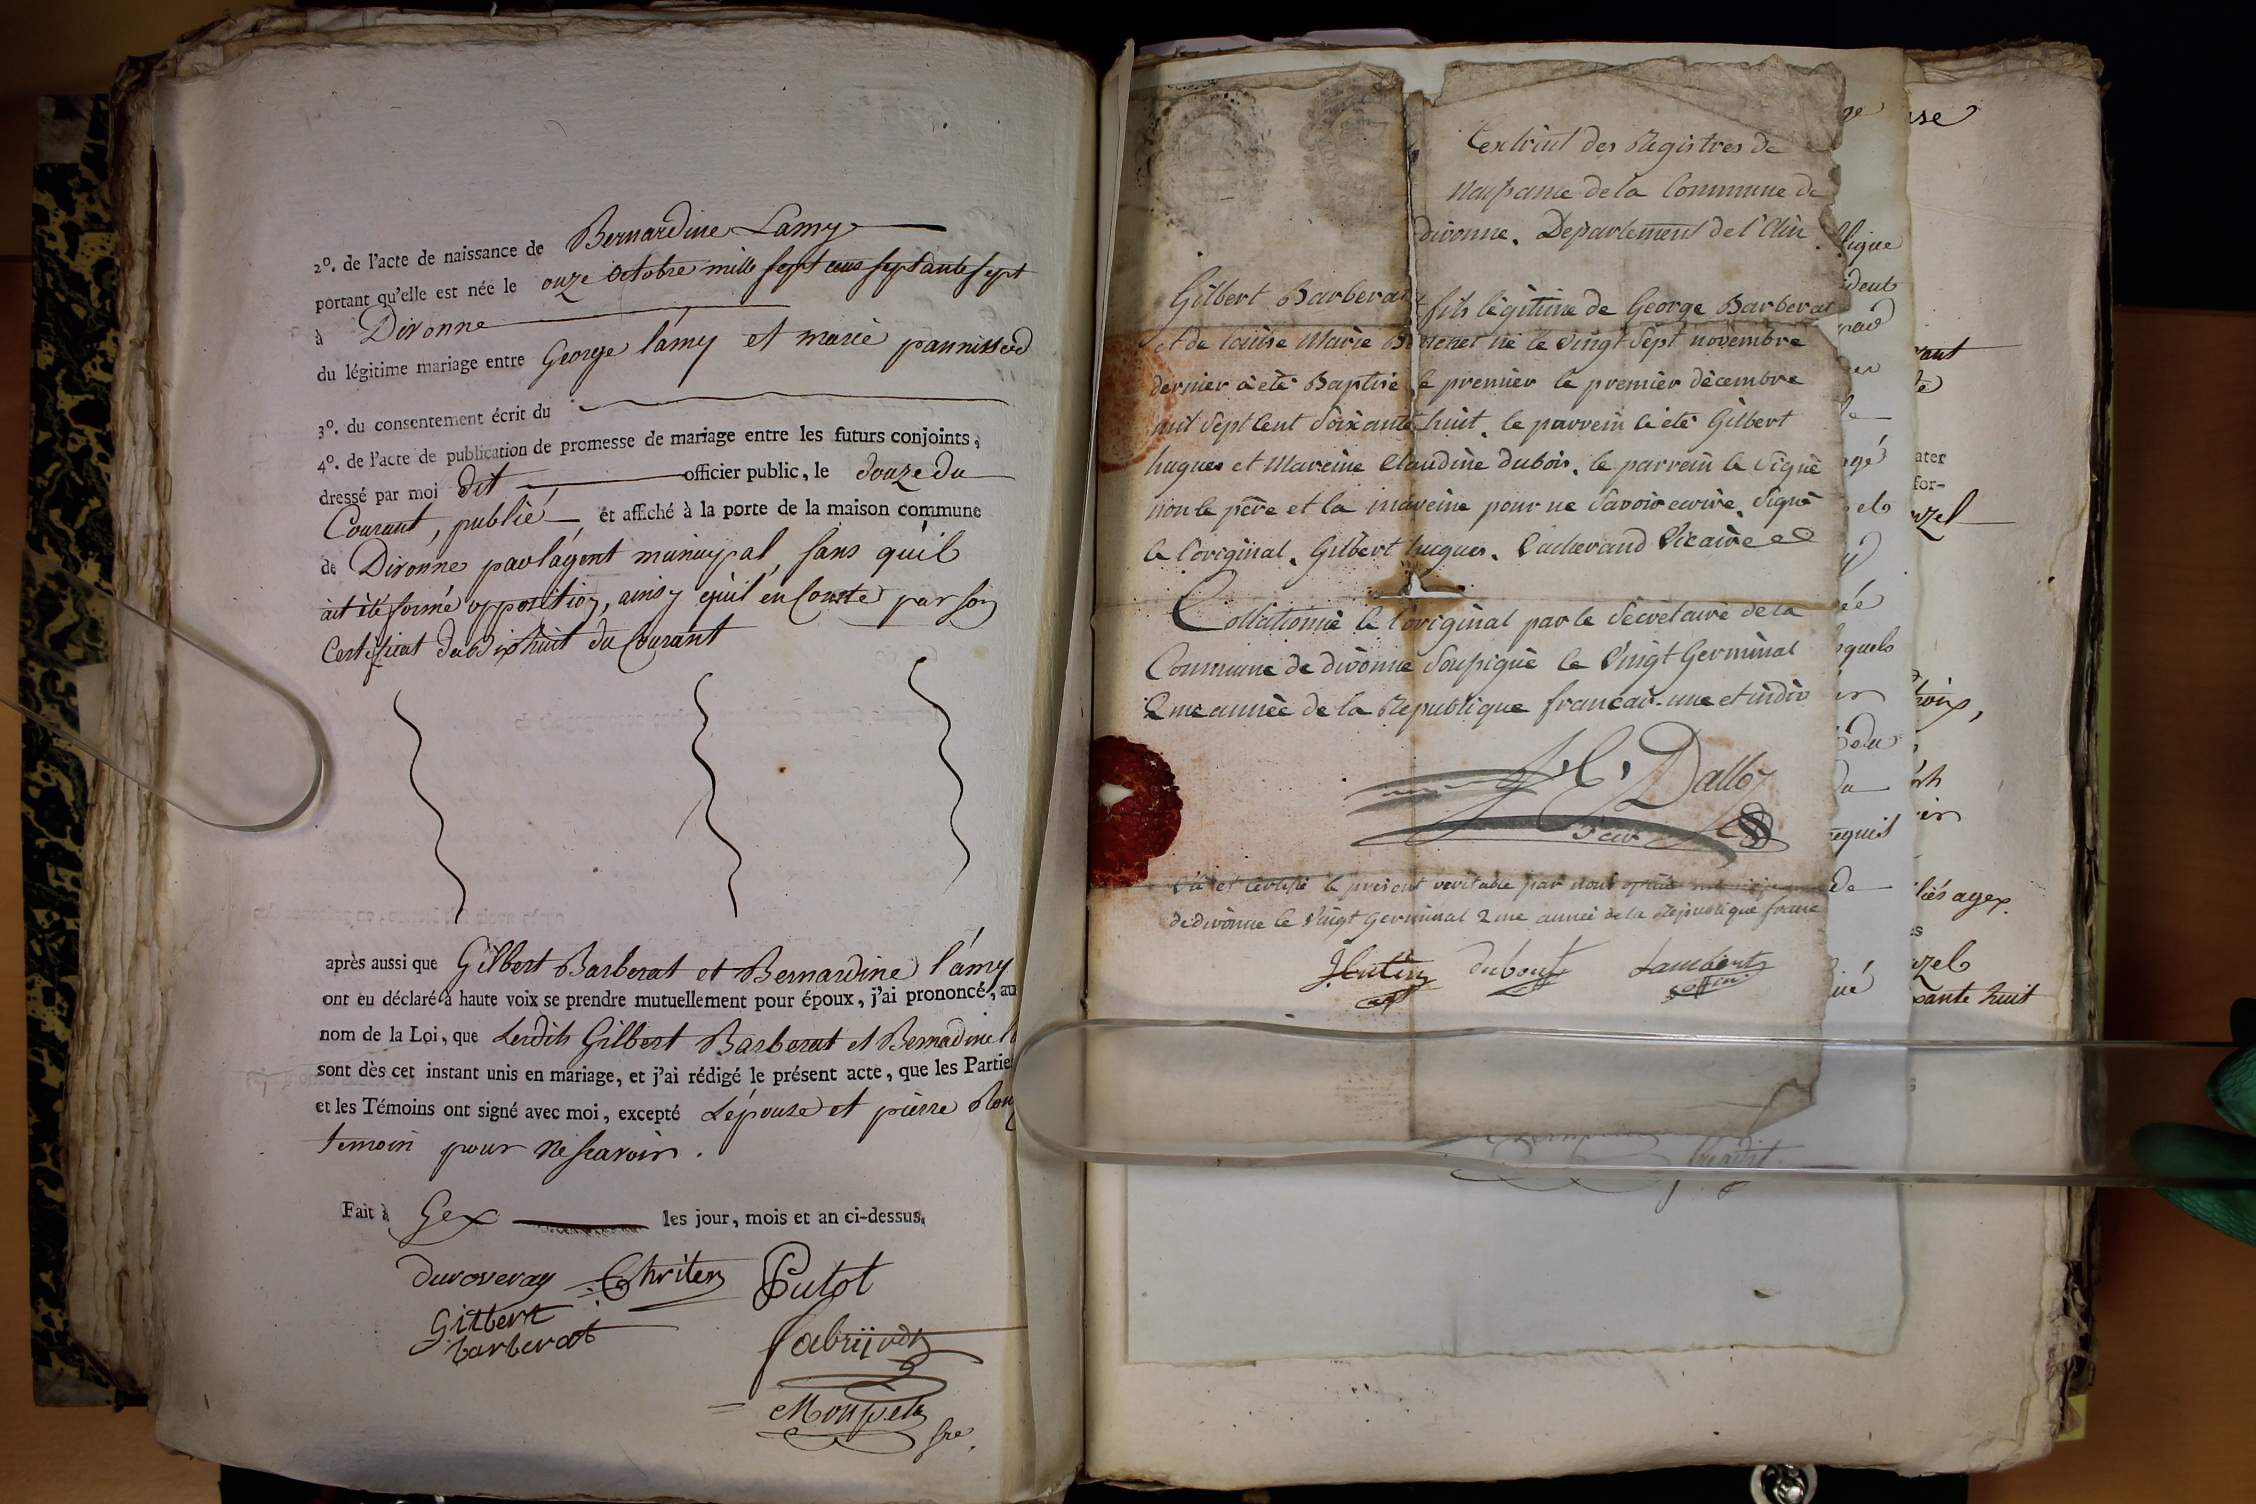 2º. de l'acte de naissance de Bernardine Lamy
portant qu'elle est née le onze octobre mille sept cens septante sept
à Divonne
du légitime mariage entre George lámy et marie pannissod
3º. du consentement écrit du
4º. de l'acte de publication de promesse de mariage entre les futurs conjoints,
dressé par moi dit officier public, le douze du
Courant, publié et affiché à la porte de la maison commune
de Divonne par lágent municipal, sans qu'il
ait été formé opposition, ainsy qu'il en Conste par son
Certificat du dixhuit du Courant
après aussi que Gilbert Barberat et Bernardine lámy
ont eu déclaré à haute voix se prendre mutuellement pour époux, j'ai prononcé, au
nom de la Loi, que Lesdits Gilbert Barberat et Bernadine
sont dès cet instant unis en mariage, et j'ai rédigé le présent acte, que les Partie
et les Témoins ont signé avec moi, excepté Lépouse et pierre
temoin pour ne scavoir.
Fait à Gex les jour, mois et an ci-dessus.
duroveray Chriten Putot
Gilbert
barberat
Mouspela
Sre.
Lextrait des Registres de
naissance de la Commune de
divonne. Departement de l'Ain
Gilbert Barberat fils légitime de George Barberat
et de louise Marie né le vingt sept novembre
dernier a été Baptisé le premier le premier décembre
mil sept cent soixante huit. le parrein à été Gilbert
hugues et Mareine Claudine dubois. le parrein à signé
non le père et la mareine pour ne savoir ecrire. signé
a l'original. Gilbert hugues. Vicaire
Collationné à l'original par le secretaire de la
Commune de divonne soussigné le vingt Germinal
2me année de la Republique francais. une et indiv
Dalloz
Secr
Vu et certifié le present veritable par nous
de divonne le vingt Germinal 2me année de la Republique franc
dubout Lambert
offici
ge
use
ligue
dent
vant
de
ater
for-
uzel
els
ée
squels
roix,
du
requis
de
uzel
xante huit